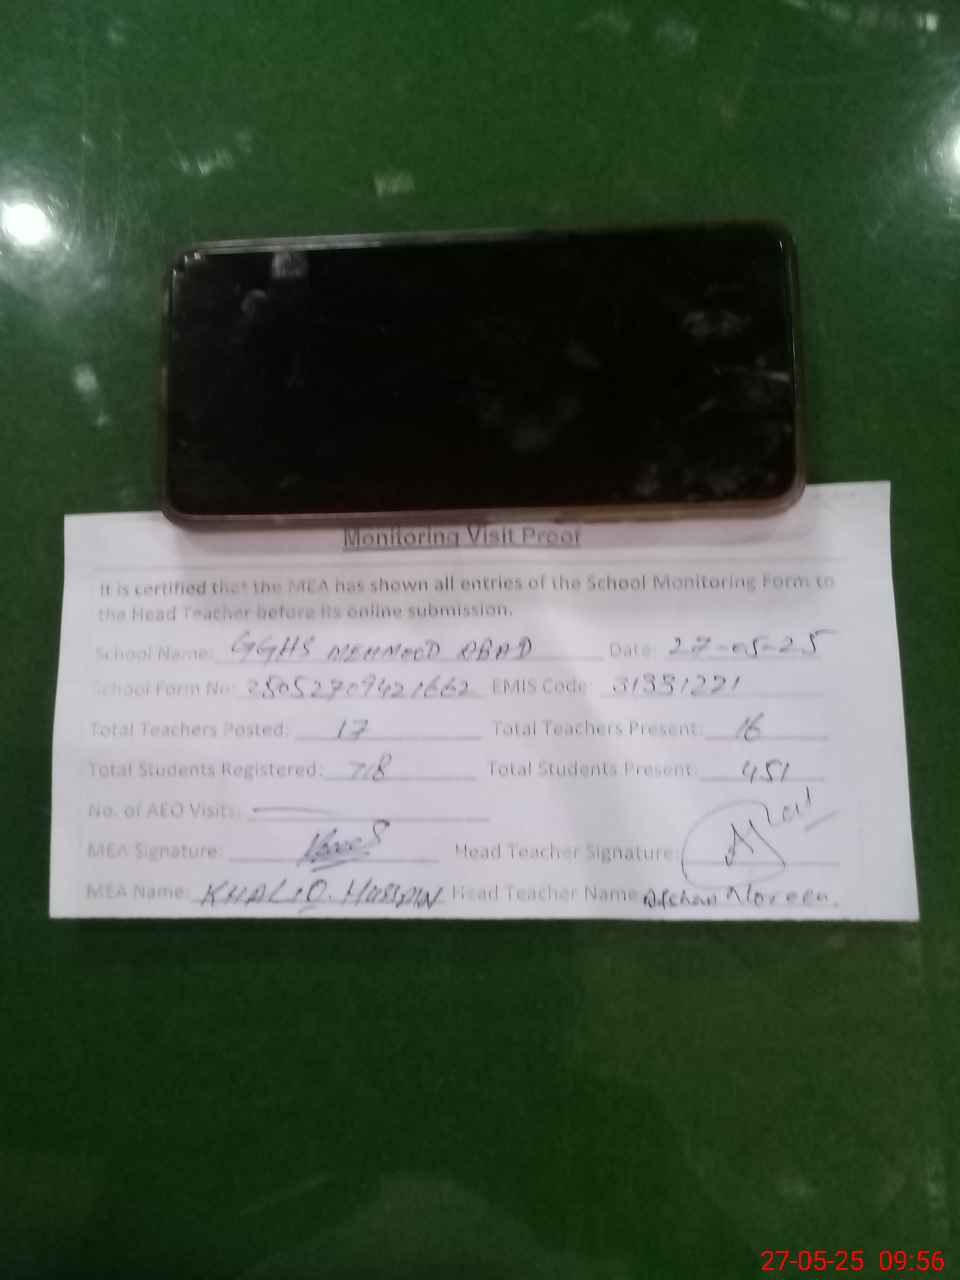 Monitoring Visit Proof
It is certified that the MEA has shown all entries of the School Monitoring Form to
the Head Teacher before its online submission.
School Name: GGHS MEHMOOD ABAD Date: 27-05-25
School Form No: 25052709421662 EMIS Code: 31331221
Total Teachers Posted: 17 Total Teachers Present: 16
Total Students Registered: 718 Total Students Present: 451
No. of AEO Visits:
MEA Signature: Head Teacher Signature:
MEA Name: KHALID HUSSAIN Head Teacher Name: Afshan Noreen.
27-05-25 09:56